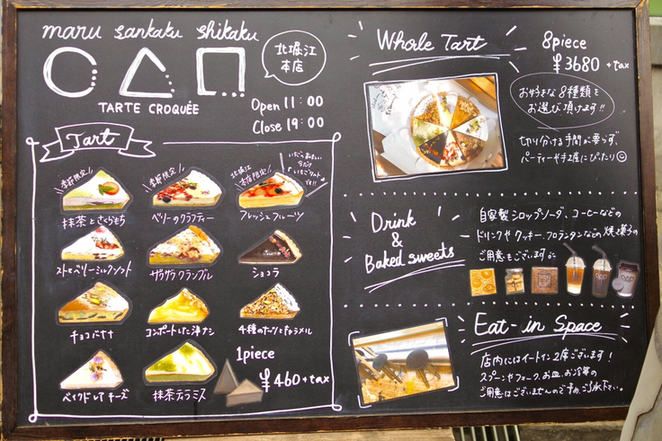 maru sankaku shikaku
TARTE CROQUÉE
北堀江
本店
Open 11:00
Close 19:00
Tart
季節限定
抹茶とさくらもち
季節限定
ベリーのクラフティー
北堀江
本店限定
フレッシュフルーツ
ストロベリーミルクソルト
ザラザラクランブル
ショコラ
チョコバナナ
コンポートした洋ナシ
4種のナッツとキャラメル
ベイクドレアチーズ
抹茶テラミス
1piece
¥460+tax
Whole Tart
8piece
¥3680 +tax
お好きな8種類を
お選び頂けます!!
切り分ける手間が要らず、
パーティーや手土産にぴったり
Drink
&
Baked sweets
自家製シロップソーダ、コーヒーなどの
ドリンクやクッキー、フロランタンなどの焼き菓子の
ご用意もございます
Eat-in Space
店内にはイートイン2席ございます!
スプーンやフォーク、お皿、お冷等の
ご用意はございませんのですが、ご了承下さい。